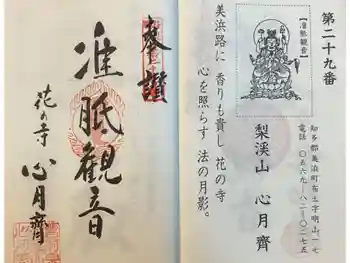 第二十九番
【准胝観音】
美浜路に 香りも貴し 花の寺
心を照らす 法の月影。
梨渓山 心月齊
知多郡美浜町布土字明山一一七
電話 〇五六九―八二―〇二七五
奉讃
准胝観音
花の寺 心月齊